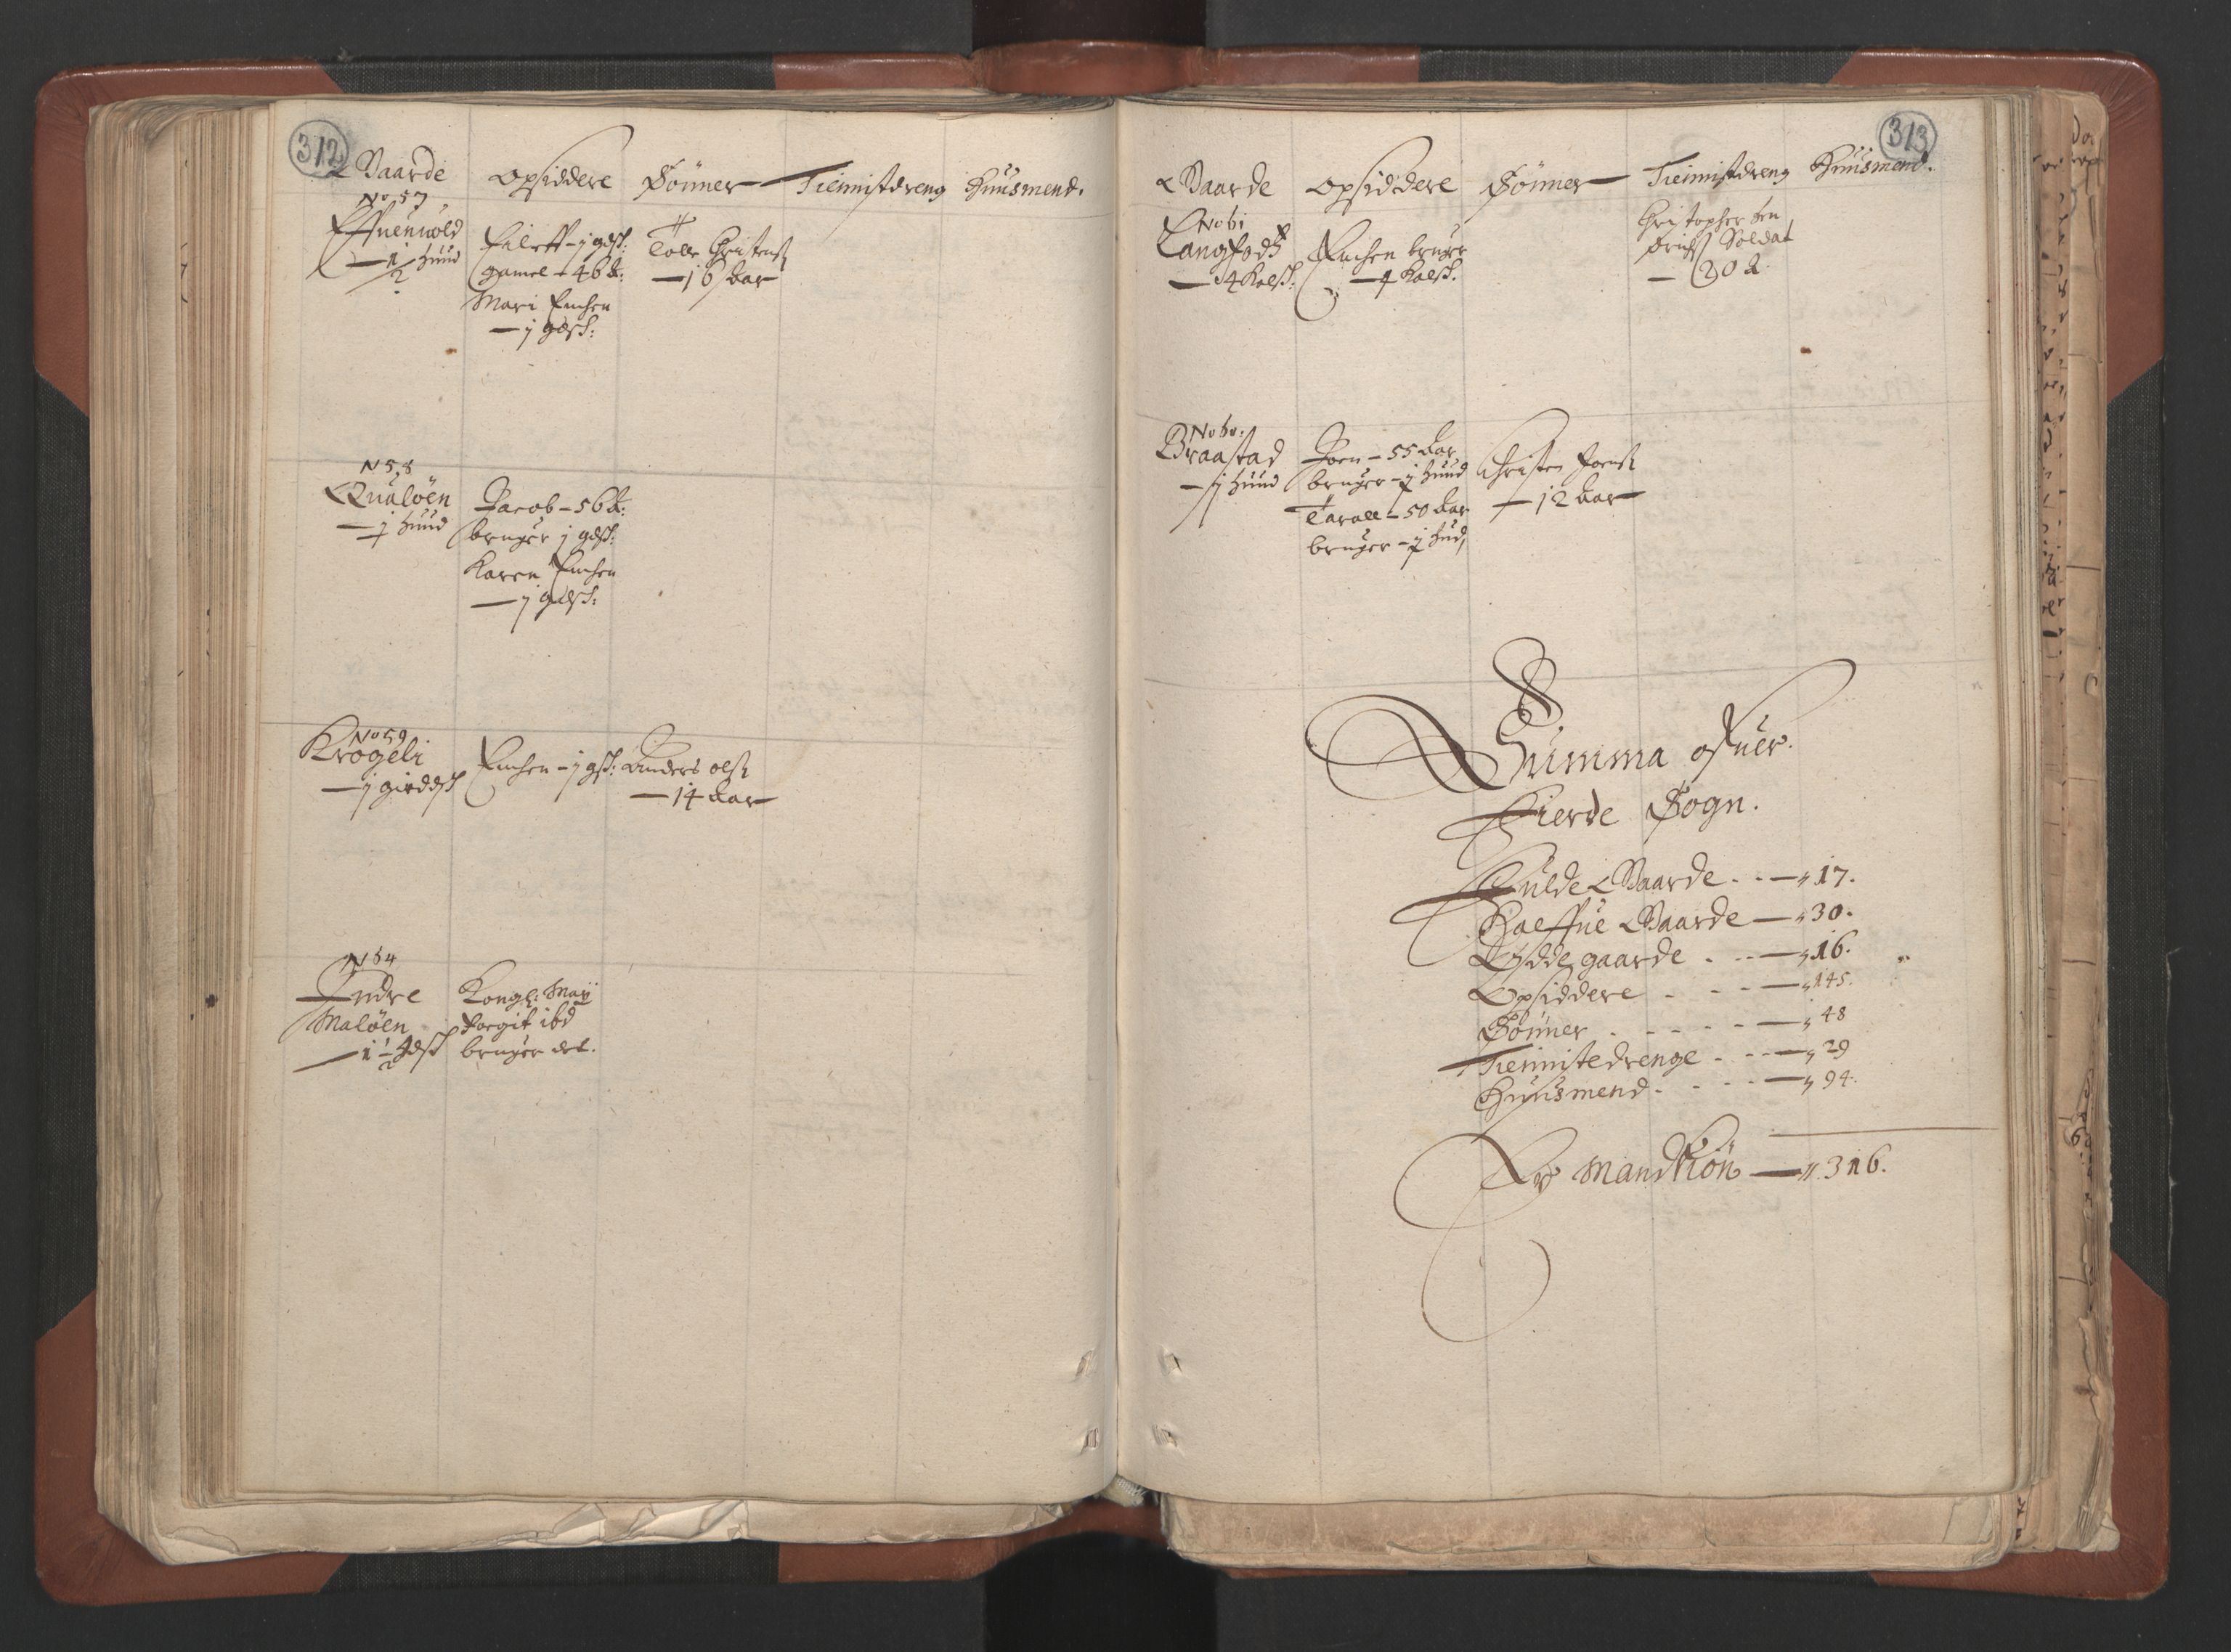 312
Gaarde Opsiddere Sönner Tiennistdreng Huusmend.
No 57
Effuenuold
1/2 Huud
Eileff - j gdsk:
gamel - 46 A:
Mari Enchen
- j gdsk:
Tolle Christensß
- 16 Aar
N 58
Qualöen
- j Huud
Jacob - 56 A:
bruger j gdsk:
Karen Enchen
- j gdsk:
No 59
Krogeli
- j girdsk
Enchen - j gsk:
Anders olsß
- 14 Aar
N 54
Indre
Malöen
- 1 1/2 gdsk
Kongl: May
foegit ibd
bruger det.
313
Gaarde Opsiddere Sönner Tiennistdreng Huusmend.
No 61
Langfodß
- 4 Kalsk:
Enchen bruger
- 4 Kalsk.
Christopher
Soldat
- 20 A.
No 60.
Braastad
- j Huud
Joen - 55 Aar
bruger - j Huud
Tarall - 50 Aar
bruger - j Hud,
Christen Joensß
- 12 Aar
Summa ofuer.
Fierde Sogn.
Fulde Gaarde . . — 17.
Halffue Gaarde — 30.
Ödde gaarde . . . — 16.
Opsiddere . . . — 145.
Sönner . . . . . — 48
Tiennistedrenge . . . — 29
Huusmend . . . . — 94.
Er Mandkiön — 316.